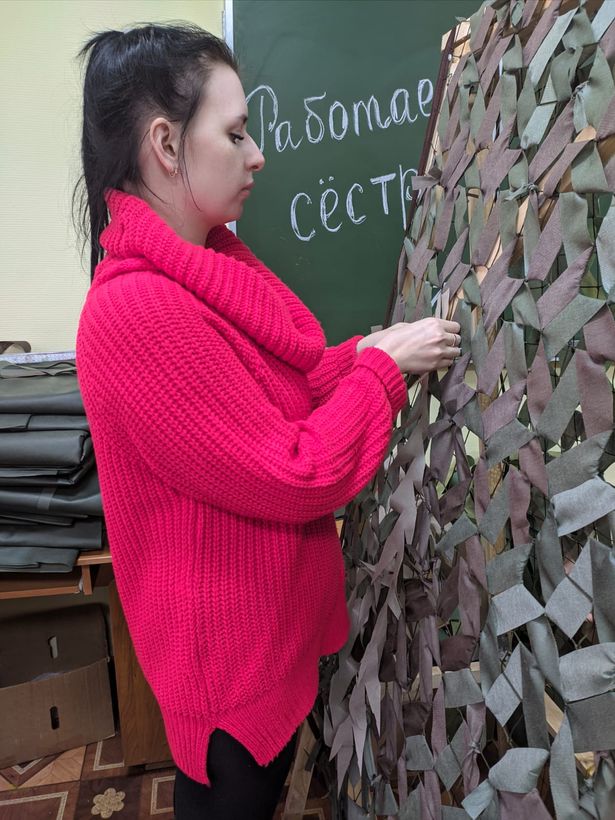 Работае
сёстр